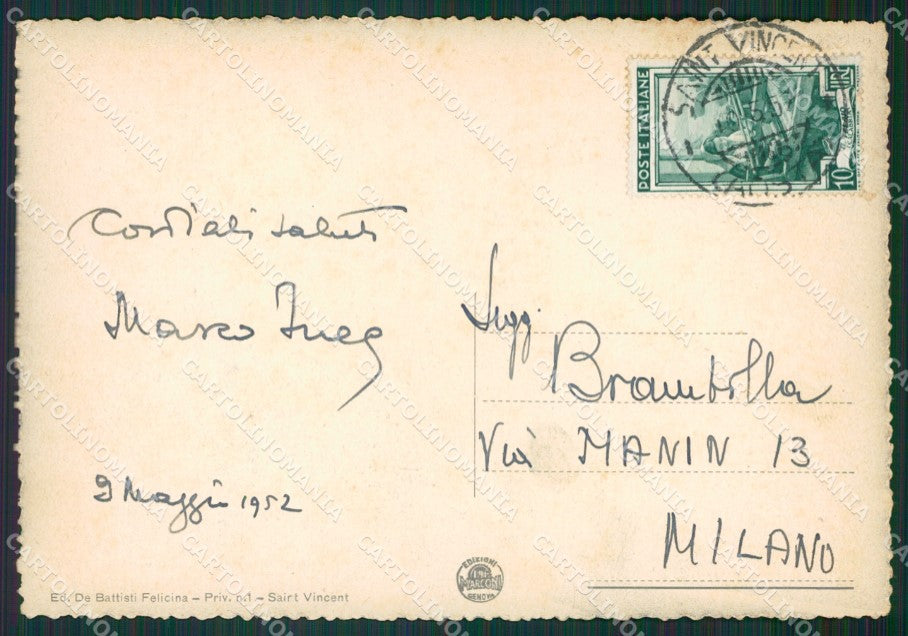 Cordiali saluti
Marco Ineg
9 Maggio 1952
Sigg.
Brambilla
Via MANIN 13
MILANO
POSTE ITALIANE
LIRE
10
SAINT VINCENT
(AOSTA)
EDIZIONI
MARCONI
GENOVA
Ed. De Battisti Felicina - Priv. n.1 - Saint Vincent
CARTOLINOMANIA